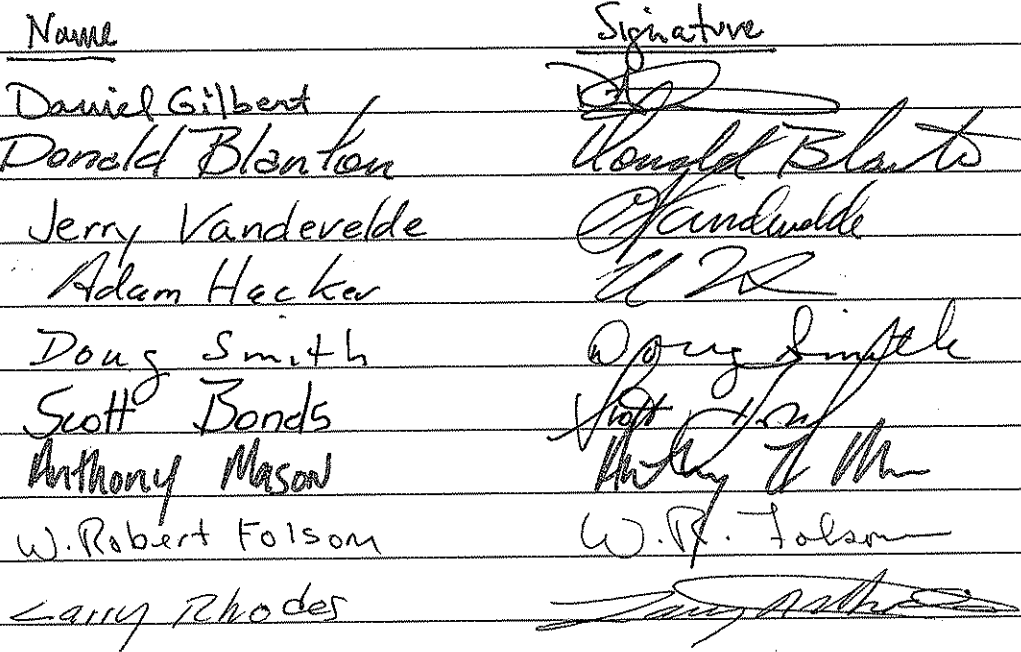 Name Signature
Daniel Gilbert
Donald Blanton Donald Blanton
Jerry Vandevelde Vandevelde
Adam Hacker
Doug Smith Doug Smith
Scott Bonds Scott
Anthony Mason Anthony
W. Robert Folsom W.R. Folsom
Larry Rhodes Larry